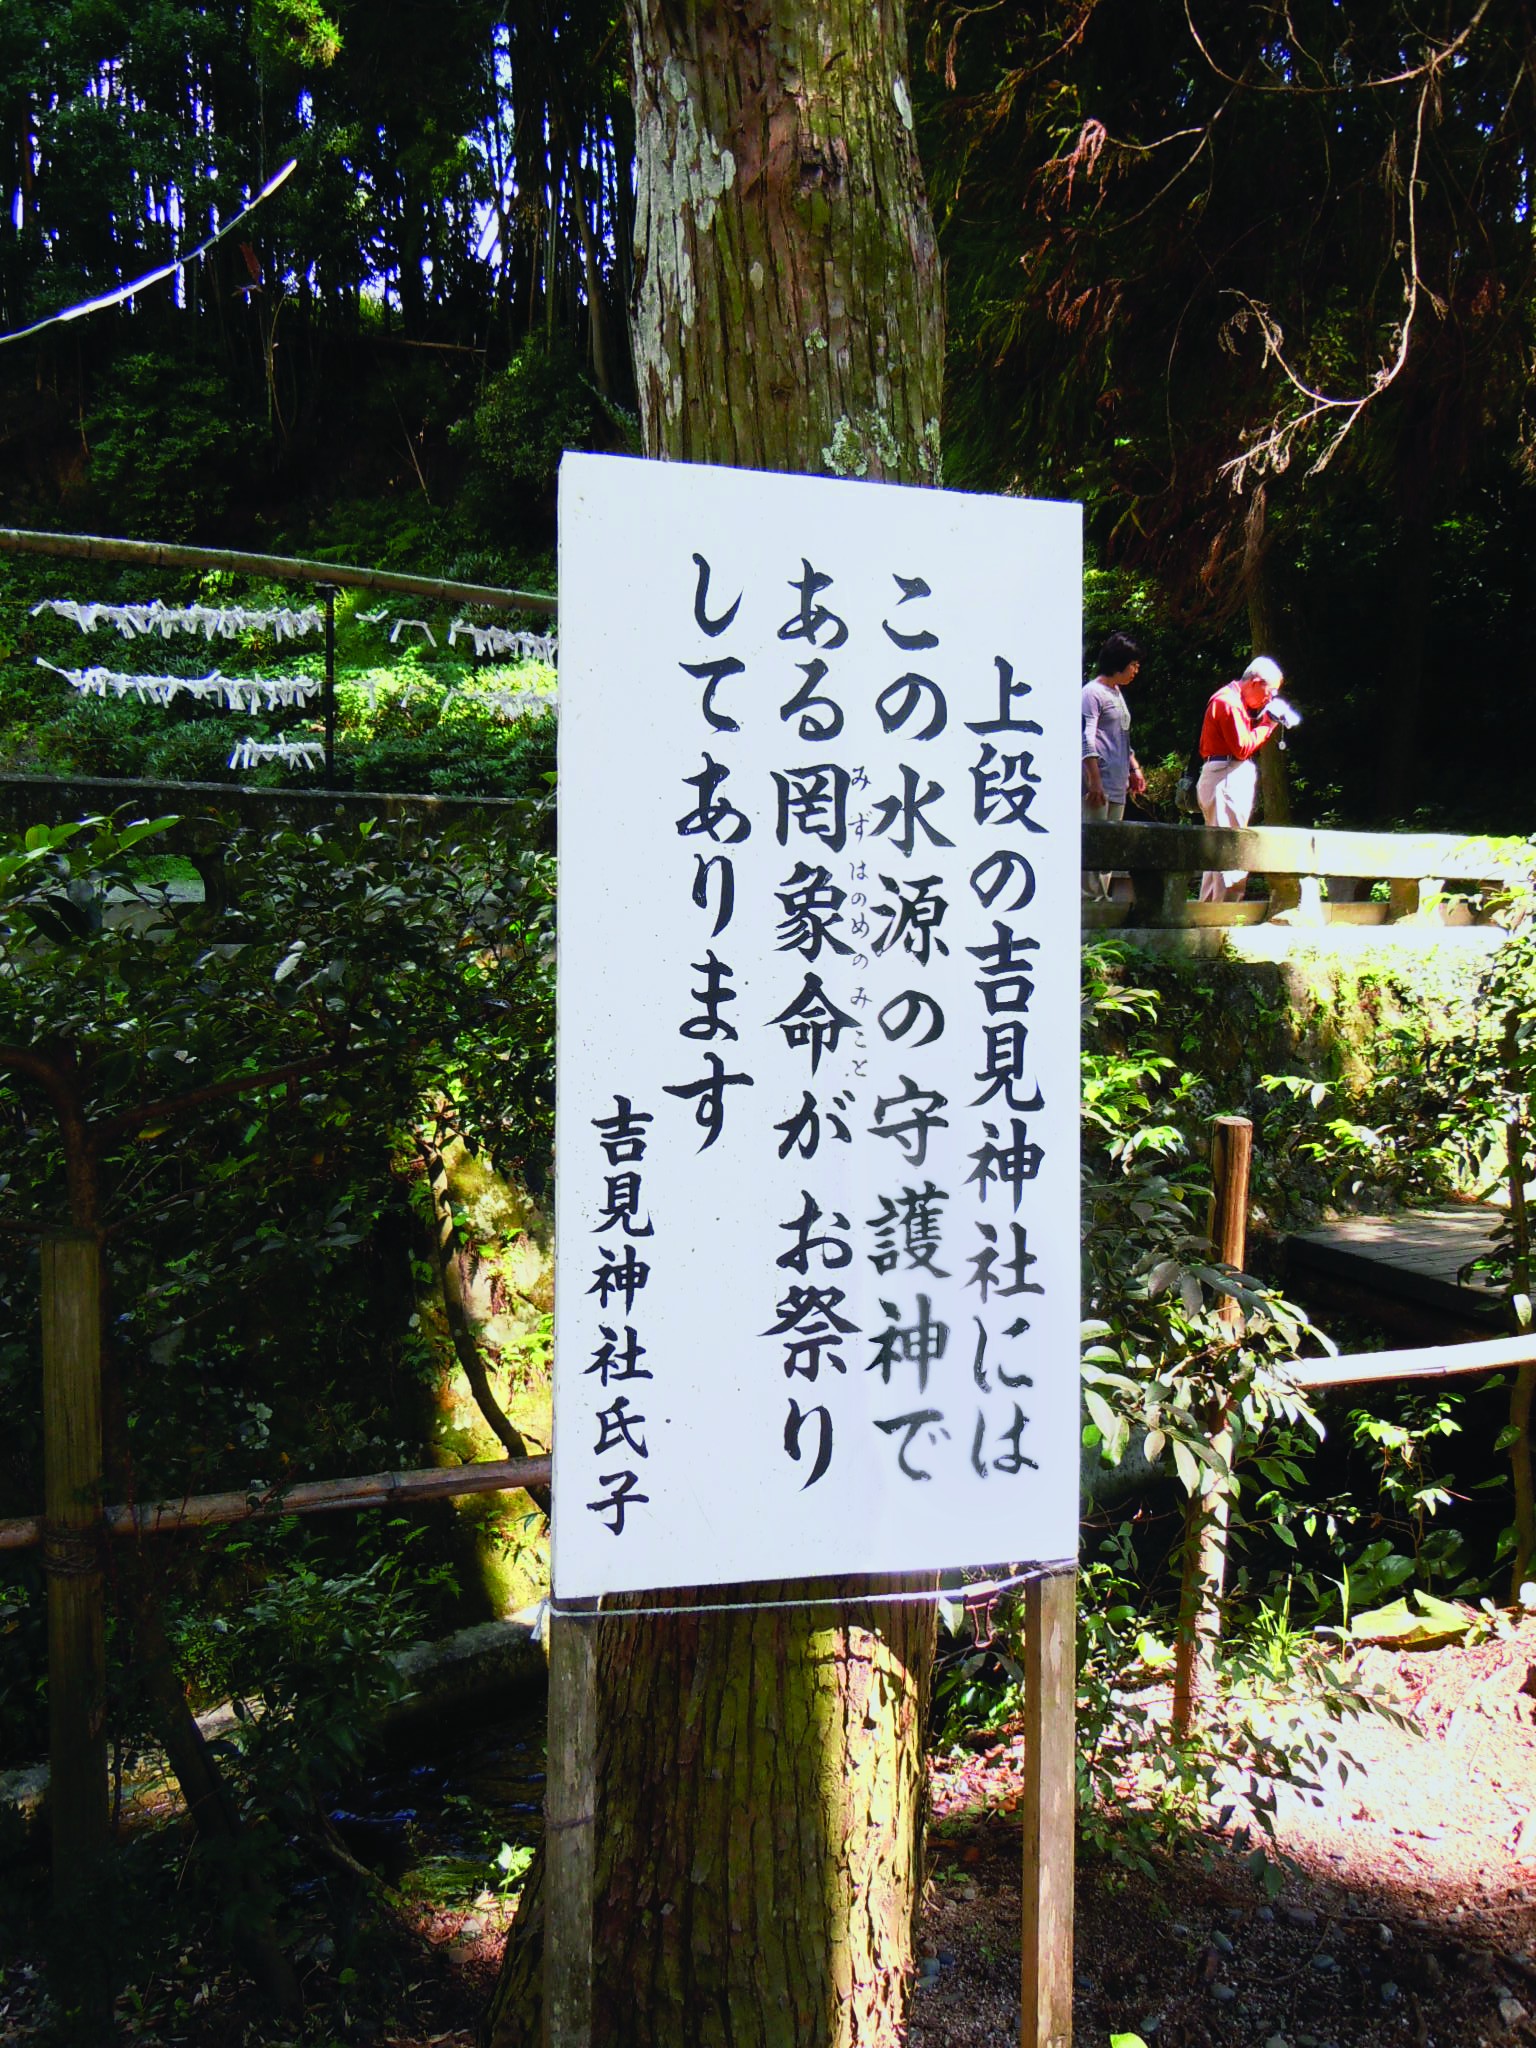 上段の吉見神社には
この水源の守護神で
ある罔象命がお祭り
みずはのめのみこと
してあります
吉見神社氏子